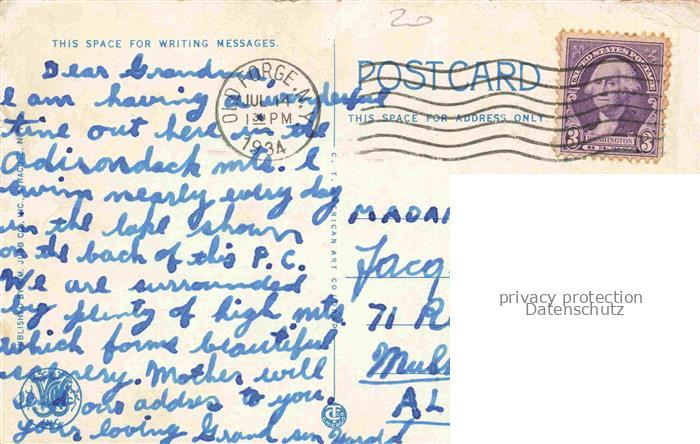 20
THIS SPACE FOR WRITING MESSAGES.
POSTCARD
THIS SPACE FOR ADDRESS ONLY.
OLD FORGE, N.Y.
JUL 14
1 PM
1934
UNITED STATES POSTAGE
WASHINGTON
3 3
Dear Grandma,
I am having a wonderful
time out here in the
Adirondack mts. I
swim nearly every day
in the lake shown
on the back of this P.C.
We are surrounded
by plenty of high mts.
which forms beautiful
scenery. Mother will
send our addres to you.
your loving Grand son
MADA
Jacq
71 R
Mulh
AL
privacy protection
Datenschutz